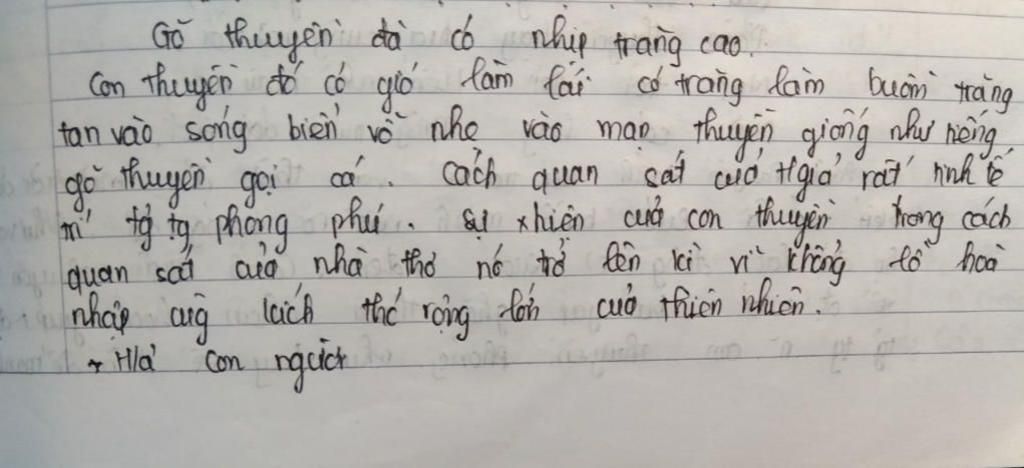 Gõ thuyền đà có nhịp trăng cao.
Con thuyền đó có gió làm lái có trăng làm buồm trăng
tan vào sóng biển vỗ nhẹ vào mạn thuyền giống như tiếng
gõ thuyền gọi cá. Cách quan sát của t/giả rất tinh tế
trí tg tg phong phú. Sự xhiện của con thuyền trong cách
quan sát của nhà thơ nó trở lên kì vĩ khổng lồ hoà
nhập cùg kích thớc rộng lớn của thiên nhiên.
+ H/ả con người